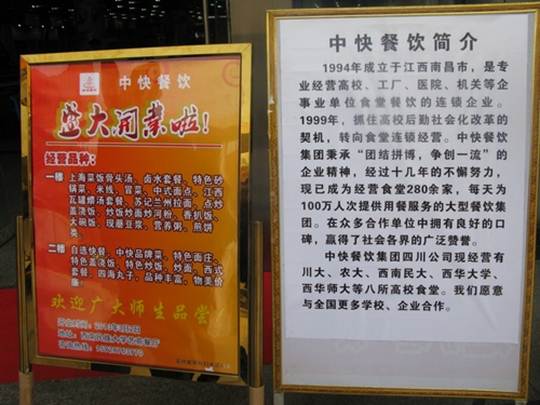 中快餐饮
盛大开業啦!
经营品种:
一楼 上海菜饭骨头汤、卤水套餐、特色砂
锅菜、米线、冒菜、中式面点、江西
瓦罐煨汤套餐、苏记兰州拉面、点式
盖浇饭、炒饭炒面炒河粉、香扒饭、
大碗饭、现磨豆浆、营养粥、煎饼
类。
二楼 自选快餐、中快品牌菜、特色面庄、
特色盖浇饭、特色炒饭、炒面、西式
套餐、四海丸子,品种丰富,物美价
廉!
欢迎广大师生品尝!
中快餐饮简介
1994年成立于江西南昌市,是专
业经营高校、工厂、医院、机关等企
事业单位食堂餐饮的连锁企业。
1999年,抓住高校后勤社会化改革的
契机,转向食堂连锁经营。中快餐饮
集团秉承“团结拼博,争创一流”的
企业精神,经过十几年的不懈努力,
现已成为经营食堂280余家,每天为
100万人次提供用餐服务的大型餐饮集
团。在众多合作单位中拥有良好的口
碑,赢得了社会各界的广泛赞誉。
中快餐饮集团四川公司现经营有
川大、农大、西南民大、西华大学、
西华师大等八所高校食堂。我们愿意
与全国更多学校、企业合作。